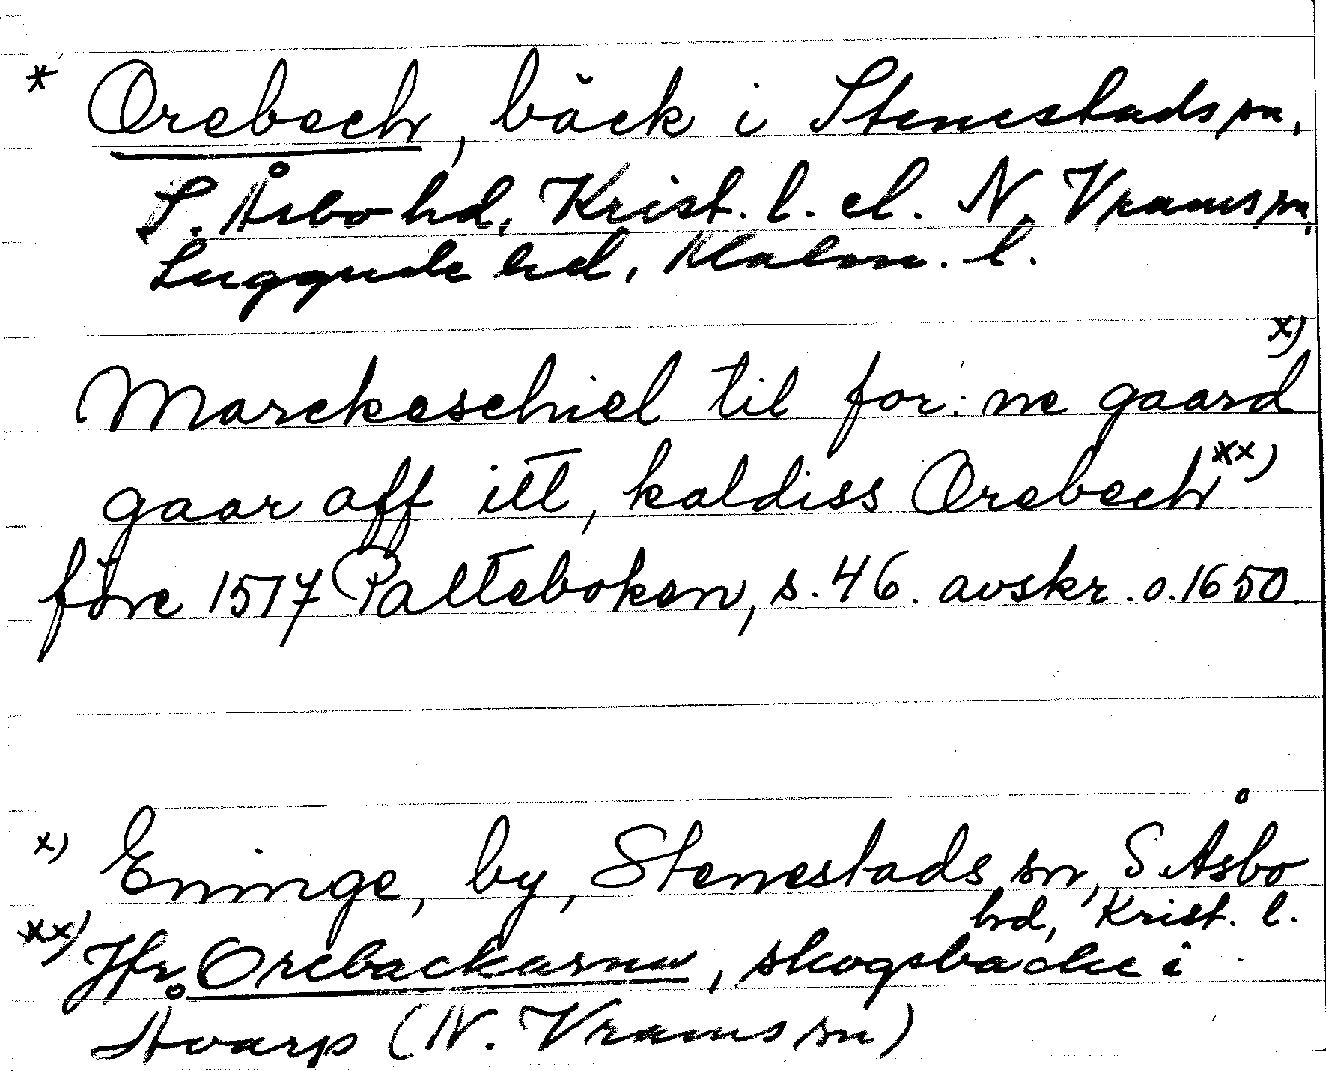 * Orebech, bäck i Stenestads sn,
S. Åsbo hd, Krist. l. el. N. Vrams sn,
Luggude hd, Malm. l.
Marckeschiel til for: ne gaard x)
gaar aff itt, kaldiss Orebech xx)
före 1517 Palteboken, s. 46. avskr. o. 1650.
x) Eninge, by, Stenestads sn, S Åsbo
hd, Krist. l.
xx) Jfr Orebackarna, skogsbacke i
Åvarp (N. Vrams sn)